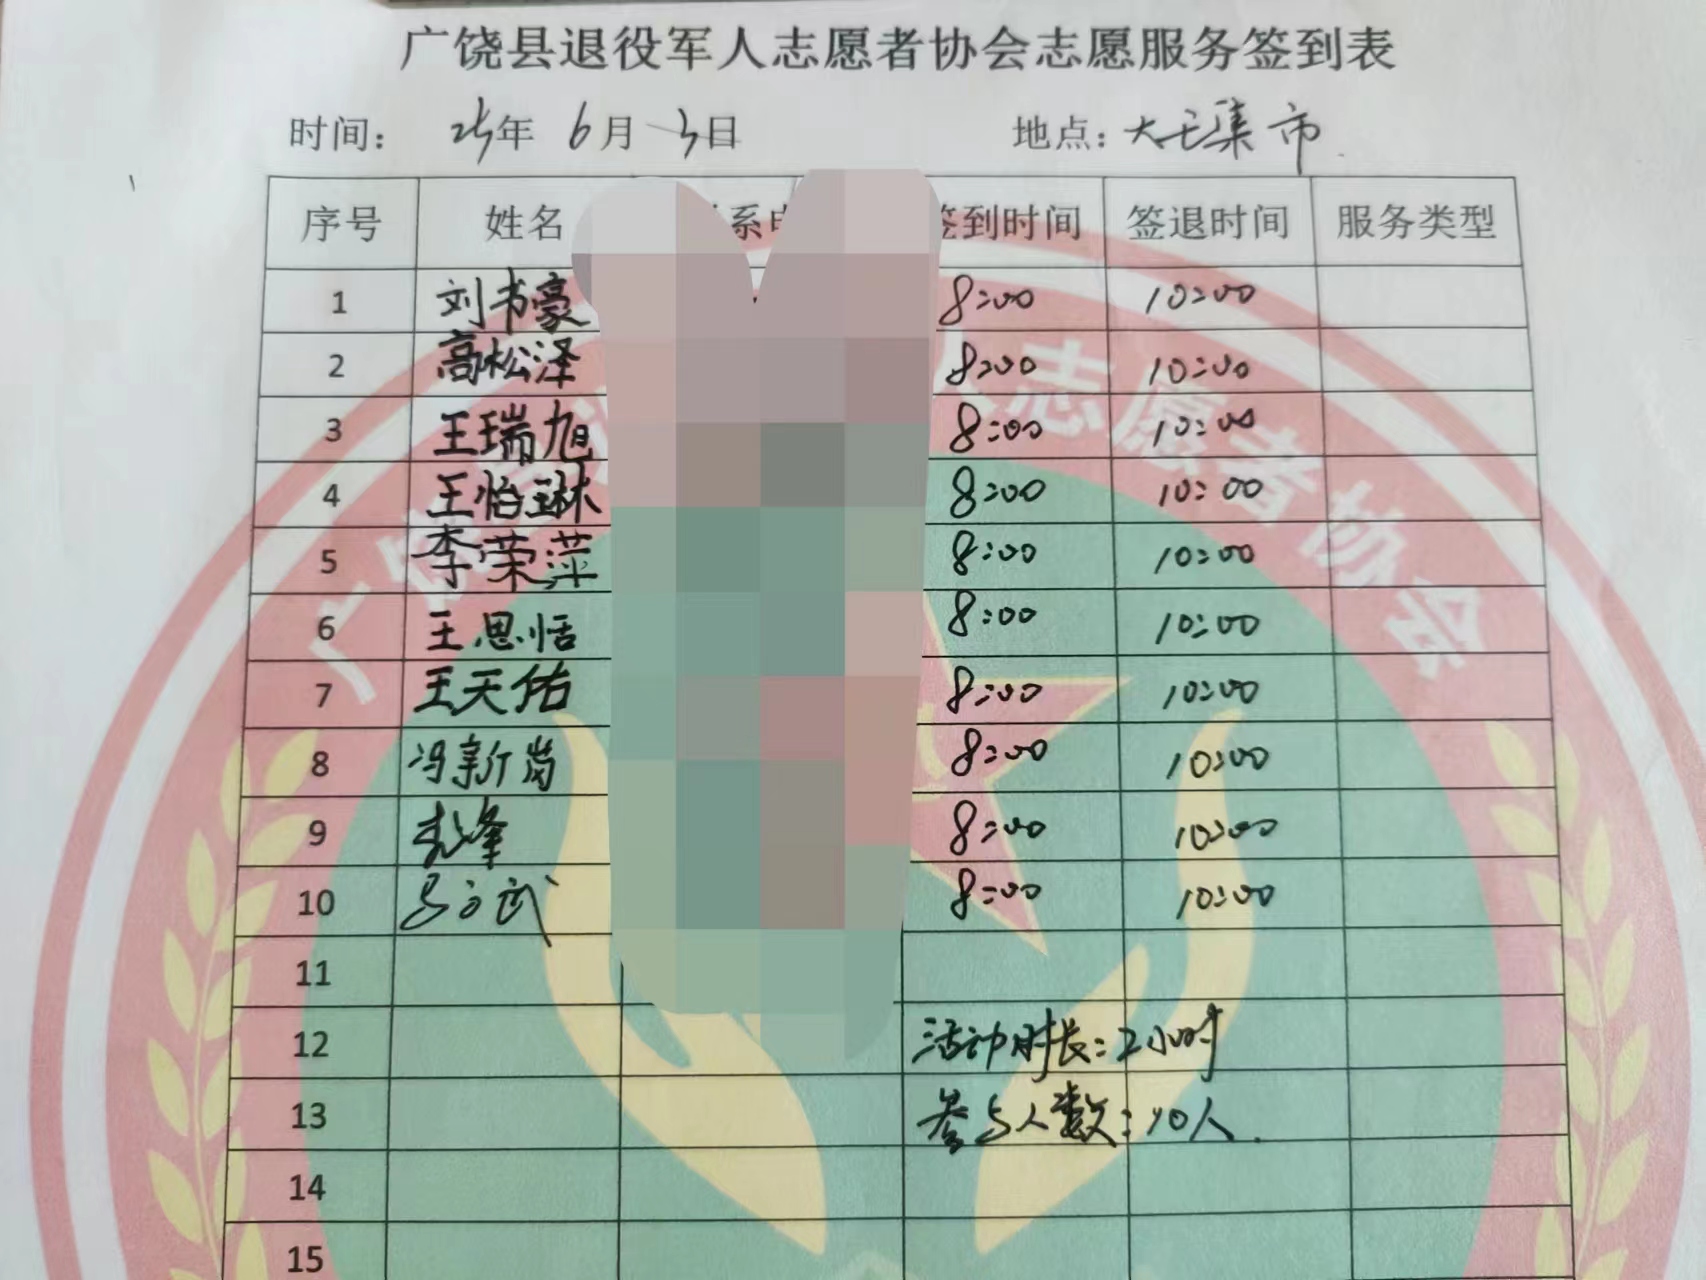 广饶县退役军人志愿者协会志愿服务签到表
时间: 25年 6月 3日 地点: 大王集市
序号 姓名 系 签到时间 签退时间 服务类型
1 刘书豪 8:00 10:00
2 高松泽 8:00 10:00
3 王瑞旭 8:00 10:00
4 王怡琳 8:00 10:00
5 李荣萍 8:00 10:00
6 王思恬 8:00 10:00
7 王天佑 8:00 10:00
8 冯新岗 8:00 10:00
9 8:00 10:00
10 武 8:00 10:00
11
12 活动时长: 2小时
13 参与人数: 10人.
14
15
广饶 志愿者协会